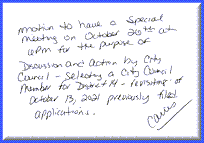 motion to have a Special
meeting on October 26th at
6PM for the purpose of
Discussion and Action by City
Council - Selecting a City Council
Member for District 4 - revisiting of
October 13, 2021 previously filed
applications.